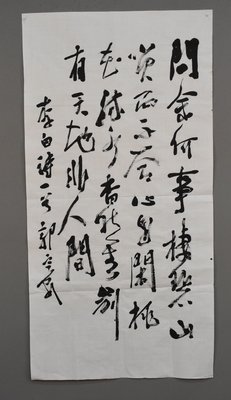 问余何事棲碧山
笑而不答心自闲桃
花流水杳然去别
有天地非人間
李白诗一首